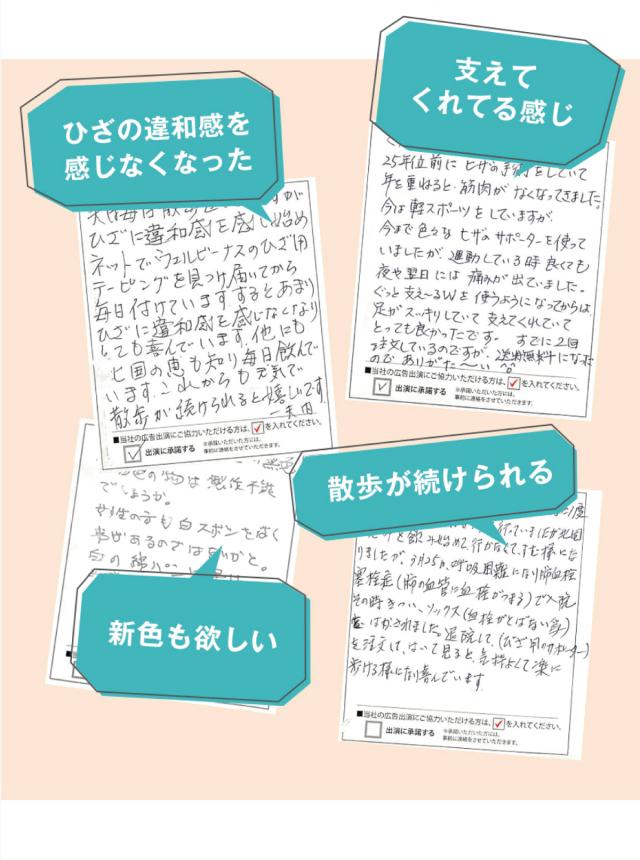 ひざの違和感を
感じなくなった
ひざに違和感を感じ始め
ネットでウェルビーナスのひざ用
テーピングを見つけ届いてから
毎日付けています。するとあまり
ひざに違和感を感じなくなり
とても喜んでいます。他にも
七国の恵も知り毎日飲んで
います。これからも元気で
散歩が続けられると嬉しいです
■当社の広告出演にご協力いただける方は、✓を入れてください。
出演に承諾する
※承諾いただいた方には、
事前に連絡をさせていただきます。
支えて
くれてる感じ
25年位前に ヒザの手術をしていて
年を重ねると、筋肉がなくなってきました。
今は軽スポーツをしていますが、
今まで色々な ヒザのサポーターを使って
いましたが、運動している時 良くても
夜や翌日には 痛みが出ていました。
ぐっと支え〜るWを使うようになってからは
足がスッキリしていて 支えてくれていて
とっても良かったです。 すでに2回
注文しているのですが、送料無料になった
のでありがた〜い
■当社の広告出演にご協力いただける方は、✓を入れてください。
出演に承諾する
※承諾いただいた方には、
事前に連絡をさせていただきます。
でしょうか。
女性の方も白ズボンをはく
新色も欲しい
散歩が続けられる
を飲み始めて、行かなくてすむ様にな
りましたが、3月25日、呼吸困難になり肺血栓
塞栓症(肺の血管に血栓がつまる)で入院
その時きついソックス(血栓がとばない為)
をはかされました。退院して、(ひざ用のサポーター)
を注文して、はいて見ると、気持よくて楽に
歩ける様になり喜んでいます。
■当社の広告出演にご協力いただける方は、✓を入れてください。
出演に承諾する
※承諾いただいた方には、
事前に連絡をさせていただきます。